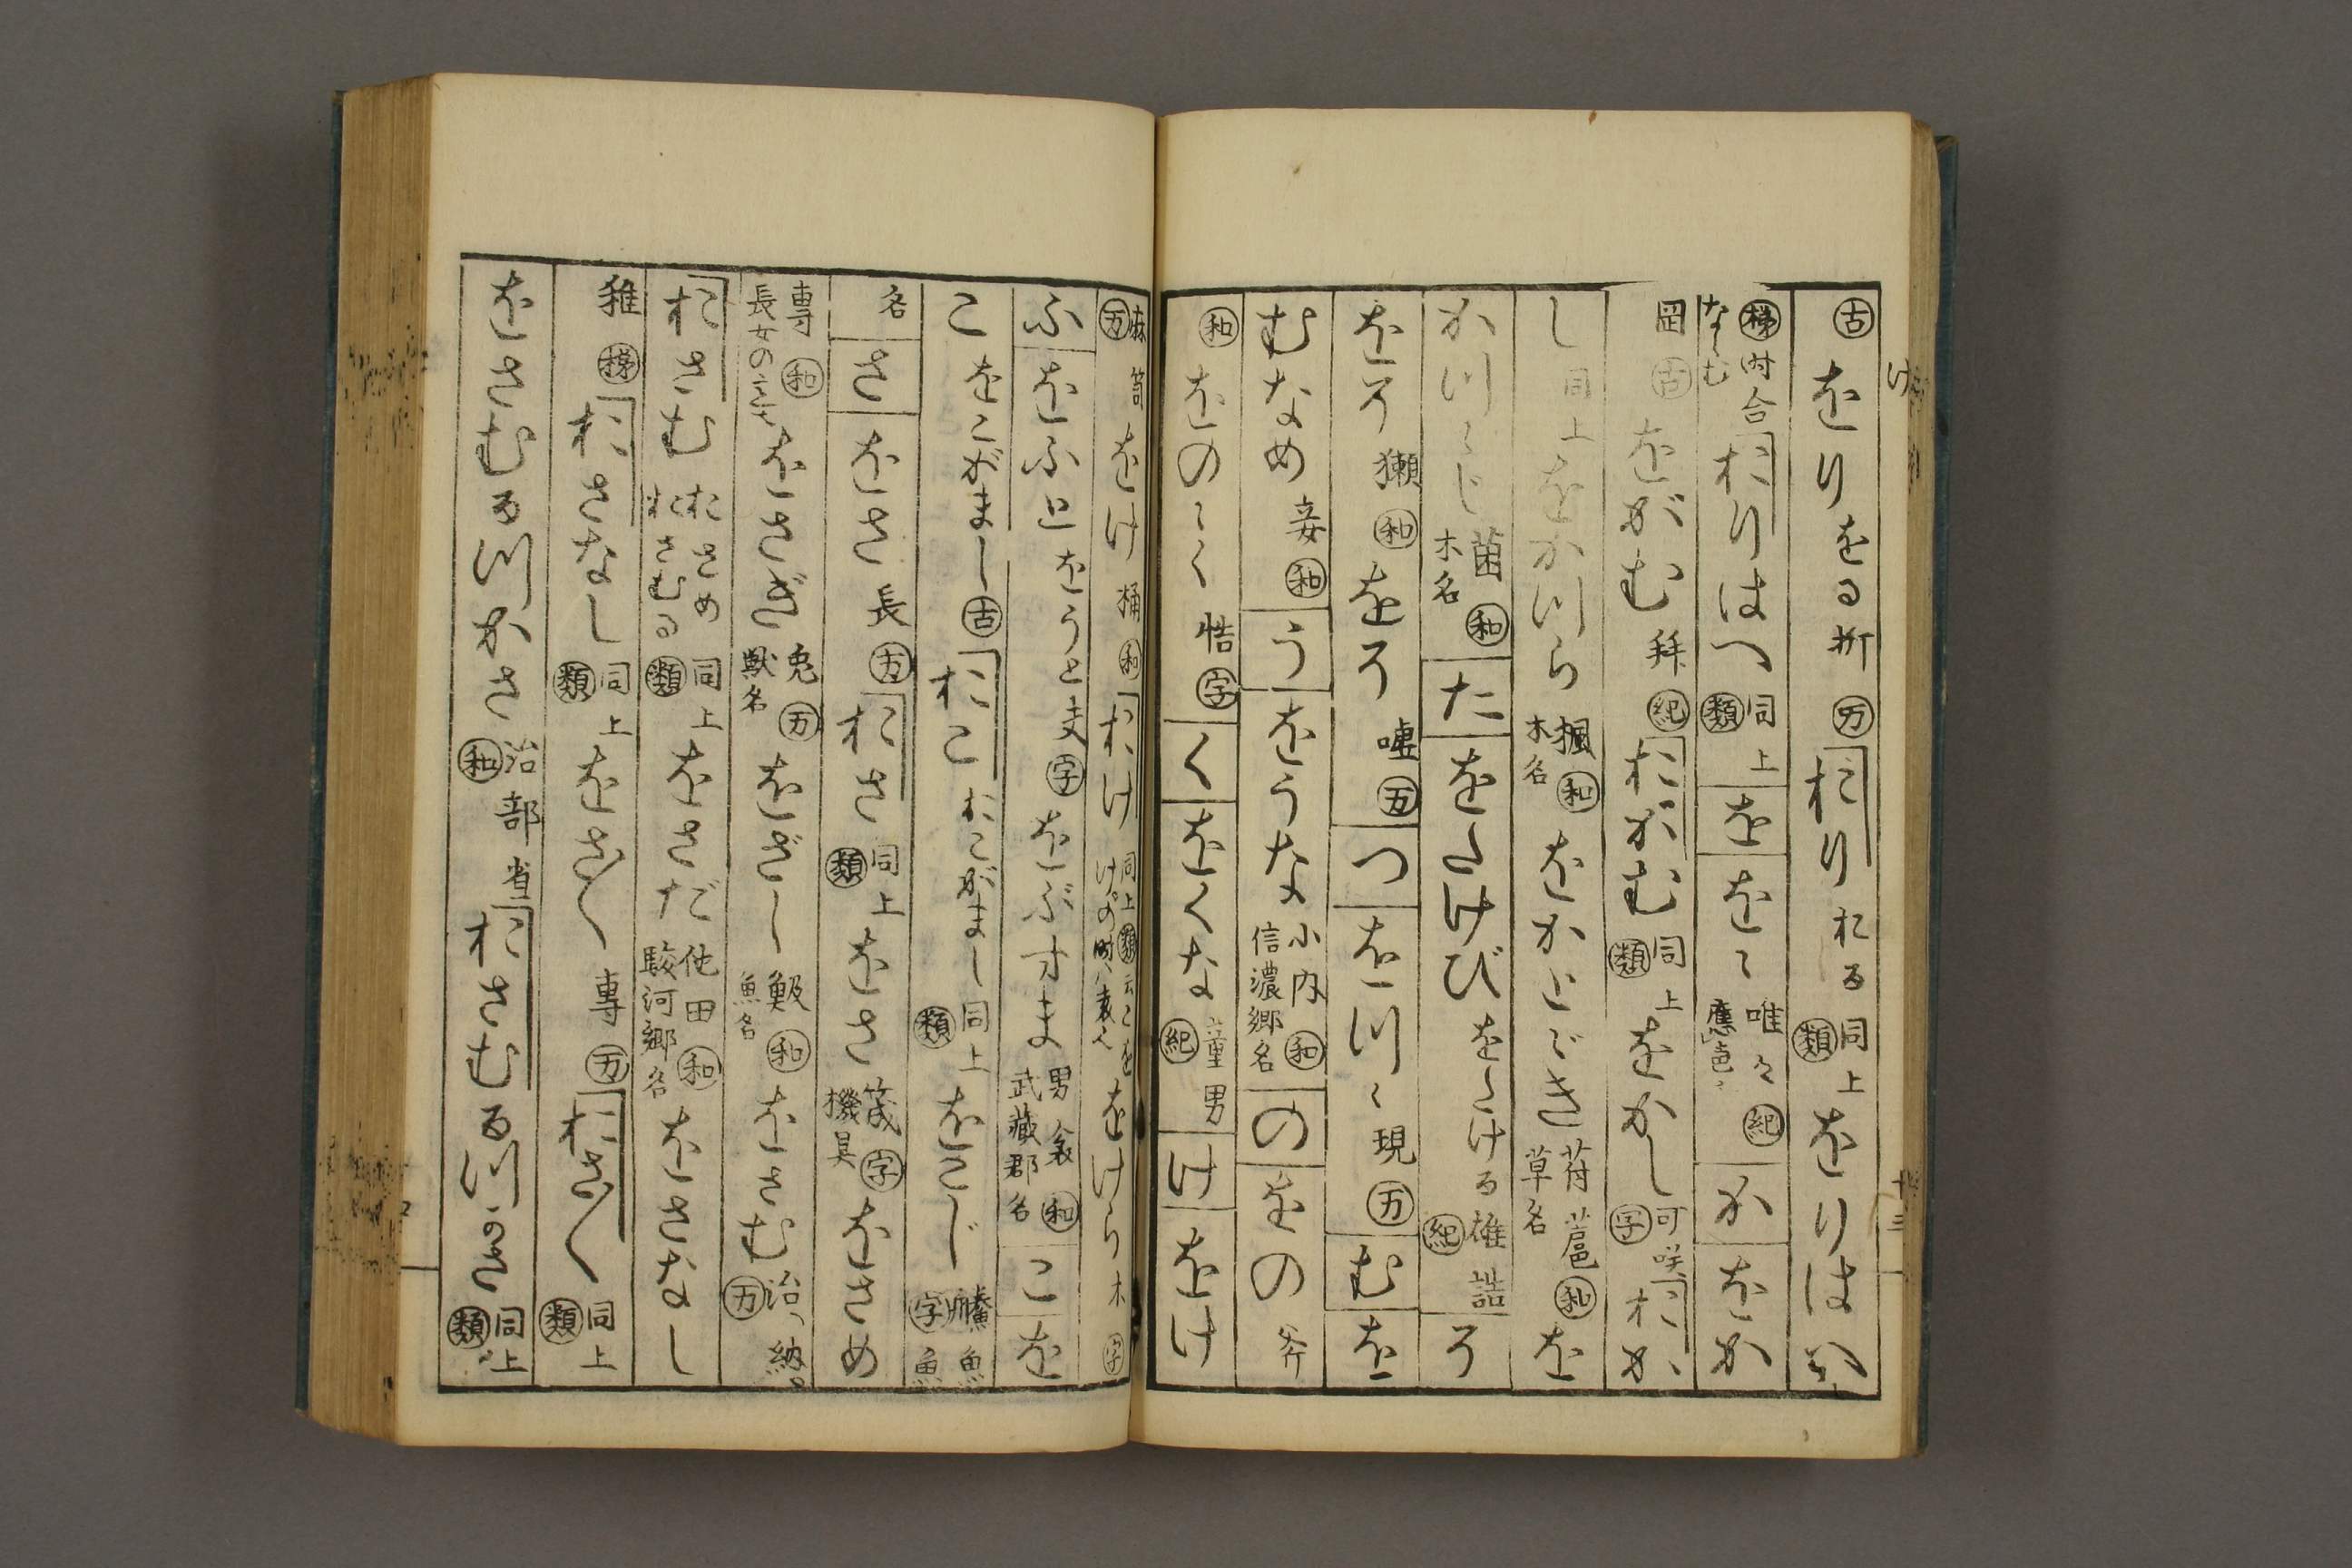 古 をり をる 折 万 おり おる 同上 類 をりはへ
梯 時合 おりはへ 同上 類 を をゝ 唯々 紀 か をか
岡 古 をがむ 拜 紀 おがむ 同上 類 をかし 可咲 字 おか
し 同上 をかつら 楓 和 木名 をかとゞき 苻 和 草名 を
かつゝじ 菌 和 木名 た をたけび をたける 雄詰 紀 ろ
をそ 獺 和 をそ 嘘 万 つ をつゝ 現 万 む を
むなめ 妾 和 う をうな 小内 和 信濃郷名 の をの 斧
和 をのゝく 字 く をくな 童男 紀 け をけ
麻笥 万 をけ 桶 和 おけ 同上 類 をけら 木 字
ふ をふと をうと 夫 字 をぶすま 男衾 和 武藏郡名 こ を
こ をこがまし 古 おこ おこがまし 同上 類 をこじ 字 魚
名 さ をさ 長 万 おさ 同上 類 をさ 筬 字 機具 をさめ
專 和 長女の をさぎ 兎 万 獸名 をざし 和 魚名 をさむ 治、納。 万
おさむ おさめ おさむる 同上 類 をさだ 他田 和 駿河郷名 をさなし
稚 梯 おさなし 同上 類 をさ〱 專 万 おさ〱 同上 類
をさむるつかさ 治部省 和 おさむるつかさ 同上 類